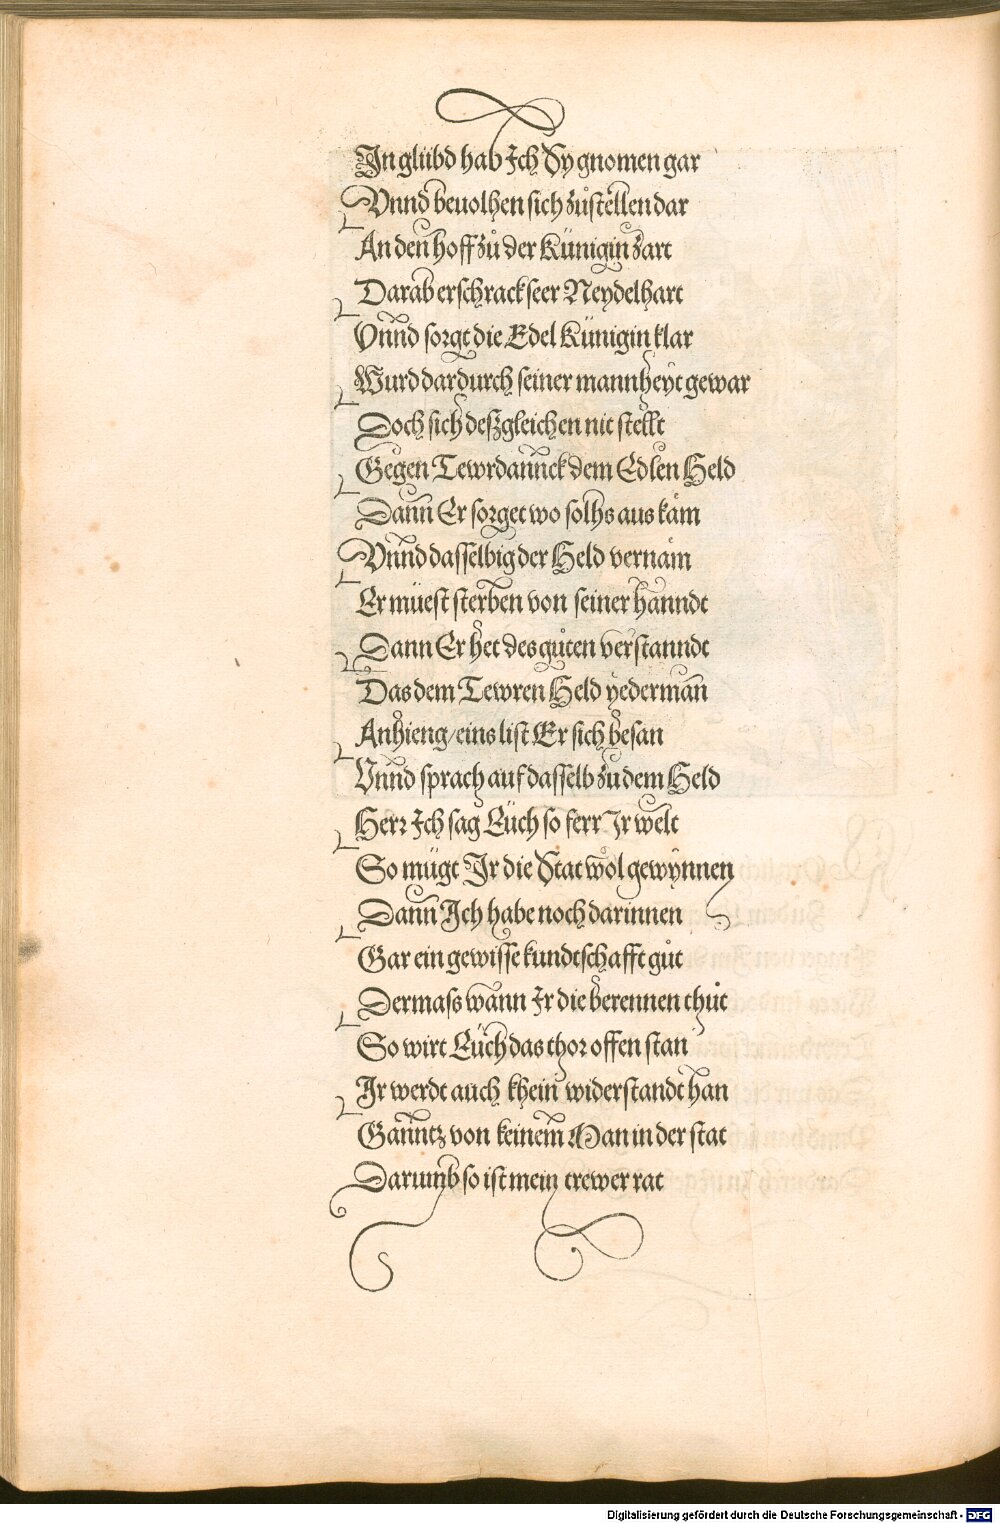 In glübd hab Ich Sy gnomen gar
Vnnd beuolhen sich zůstellen dar
An den hoff zů der Künigin zart
Darab erschrack seer Neydelhart
Vnnd sorgt die Edel Künigin klar
Wurd dardurch seiner mannheyt gewar
Doch sich deßgleichen nit stellt
Gegen Tewrdannck dem Edlen Held
Dann Er sorget wo solhs aus käm
Vnnd dasselbig der Held vernäm
Er müest sterben von seiner hanndt
Dann Er het des gůten verstanndt
Das dem Tewren Held yederman
Anhieng / eins list Er sich besan
Vnnd sprach auf dasselb zu dem Held
Herr Ich sag Euch so ferr Ir welt
So mügt Ir die Stat wol gewynnen
Dann Ich habe noch darinnen
Gar ein gewisse kundtschafft gůt
Dermass wann Ir die berennen thůt
So wirt Euch das thor offen stan
Ir werdt auch khein widerstandt han
Ganntz von keinem Man in der stat
Darumb so ist mein trewer rat
Digitalisierung gefördert durch die Deutsche Forschungsgemeinschaft - DFG